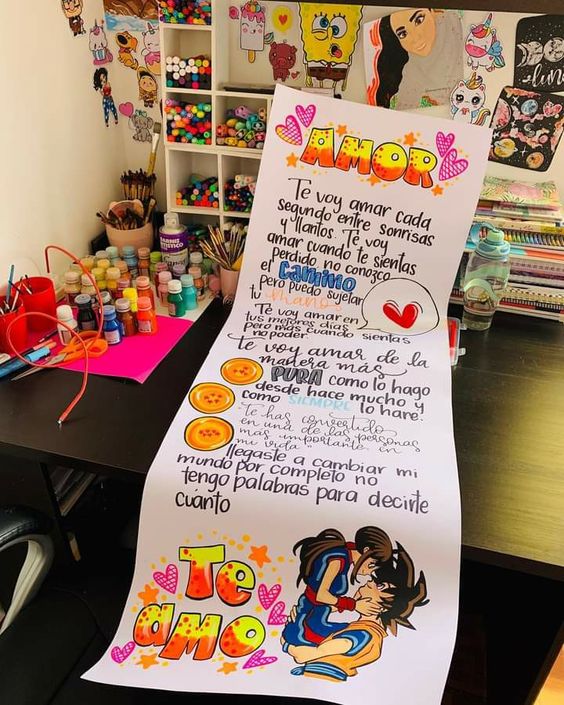 AMOR
Te voy amar cada
segundo entre sonrisas
y llantos. Te voy
amar cuando te sientas
perdido, no conozco
el Camino
Pero puedo sujetar
tu mano
Te voy amar en
tus mejores días
Pero más cuando sientas
no poder.
Te voy amar de la
manera más
PURA como lo hago
desde hace mucho y
como SIEMPRE lo haré.
"Te has convertido
en una de las personas
más importante en
mi vida"
llegaste a cambiar mi
mundo por completo no
tengo palabras para decirte
cuánto
Te
AMO